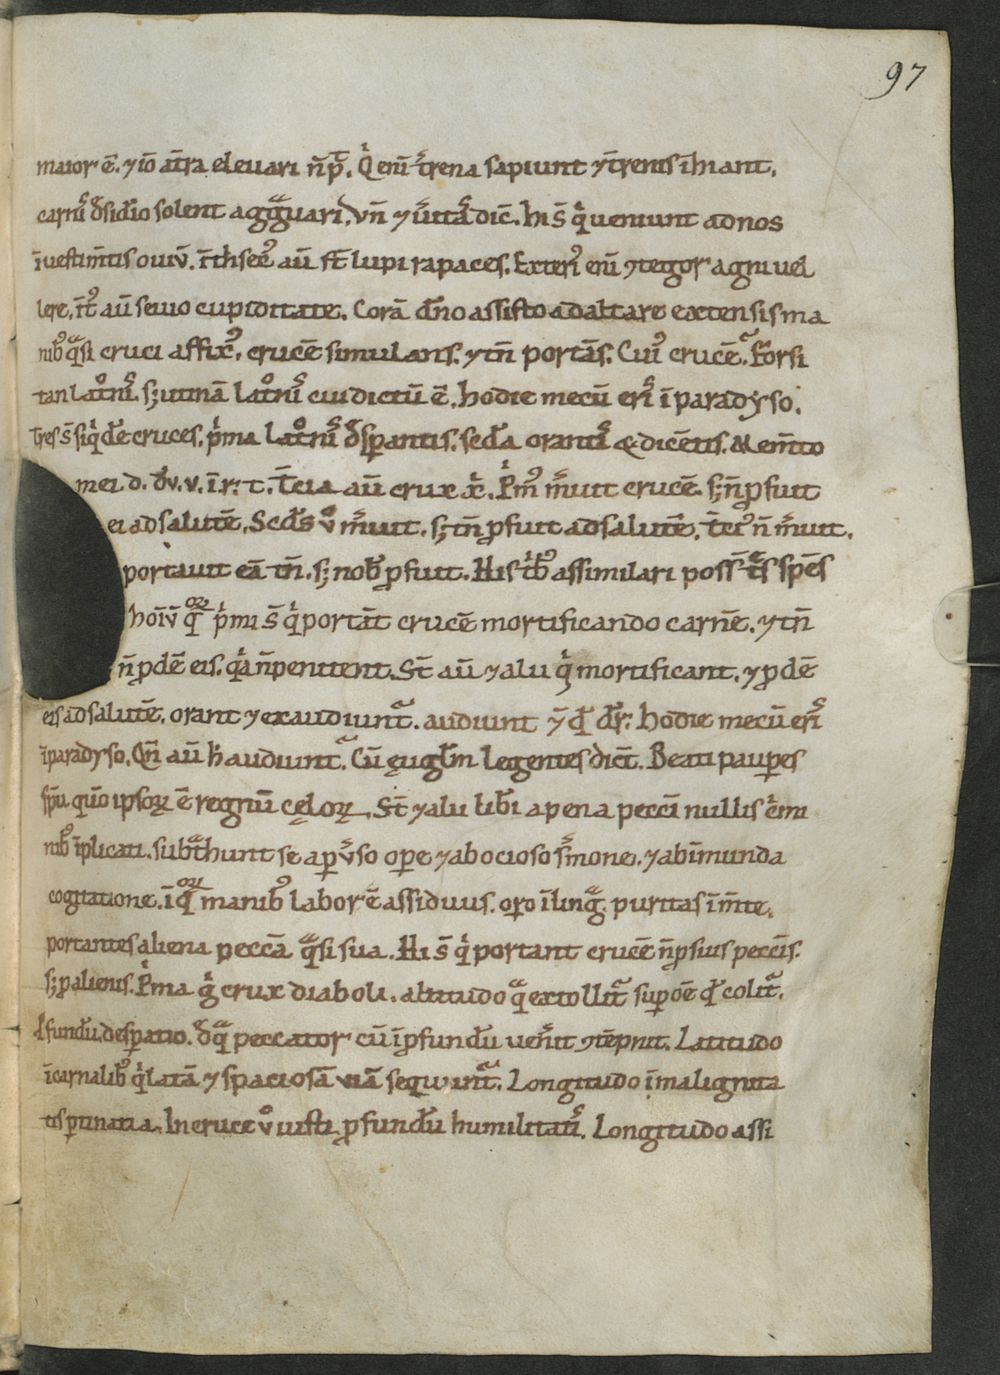 97
maior ē. ⁊ iō a t̄ra eleuari n̄ p̄t. Qͥ eni t̄rena sapiunt ⁊ t̄renis īhiant.
carnꝭ dͤsidͥio solent agg̃uari. Vn̄ ⁊ ūitas dic̄. Hi s̄ qͥ ueniunt ad nos
ī uestim̄tis ouiū. īt̄hsec᷒ aū st̄ lupi rapaces. Exteri᷒ enī ꝯtegor agni uel
lere. īt᷒ aū seuo cupiditate. Corā dn̄o assisto ad altare extensis ma
nib᷒ qͣsi cruci affix᷒. crucē simulans. ⁊ tn̄ portās. Cui᷒ crucē? Forsi
tan latͦnꝭ. sꝫ utinā latͦnꝭ cui dictū ē. hodie mecū erꝭ ī paradyso.
Tres s̄ siqͥdē cruces. pͥma latͦnꝭ dͤsꝑantis. sc̄da orantꝭ & dicētis. Mem̄to
mei d. dū. v. ī. r. t. T̄cia aū crux xͥ. Pͥm᷒ m̄uit crucē. sꝫ n̄ ꝓfuit
ei ad salutē. Sc̄ds ūͦ m̄uit. sꝫ tn̄ ꝓfuit ad salutē. T̄ci᷒ n̄ m̄uit.
portauit eā tn̄. sꝫ nob̄ ꝓfuit. His tͥb᷒ assimilari poss̄ tͤs spēs
hoīū qͦꝝ pͥmi s̄ qͥ portāt crucē mortificando carnē. ⁊ tn̄
n̄ ꝓdē eis. qͥa n̄ penitent. St̄ aū ⁊ alii qͥ mortificant. ⁊ ꝓdē
eis ad salutē. orant ⁊ exaudiunt᷑. audiunt ⁊̄ qd̄ dr̄. hodie mecū erꝭ
ī paradyso. Qn̄ aū h̄ audiunt? Cū ęuglm̄ legentes dict̄. Beati pauꝑes
sp̄u qm̄ ipsoꝝ ē regnū cęloꝝ. St̄ ⁊ alii lib̄i a pena pecc̄i nullis c̄imi
nib᷒ īplicati. subt̃hunt se a ꝑūso oꝑe ⁊ ab ocioso s̄mone. ⁊ ab īmunda
cogitatione. ī qͦꝝ manib᷒ labor ē assiduus. or̄o ī lingͣ. puritas ī m̄te.
portantes aliena peccā qͣsi sua. Hi s̄ qͥ portant crucē n̄ ꝓ suis peccīs.
sꝫ ꝓ alienis. Pͥma gͥ crux diaboli. altitudo qͣ extollit᷑ sup̄ oē qd̄ colit᷑.
Ꝓfundū desꝑatio. dͤ qͣ peccator cū ī ꝓfundū uen̄it ꝯtēpnit. Latitudo
ī carnalib᷒ qͥ latā ⁊ spaciosā uiā sequunt᷑. Longitudo ī malignita
tis ꝑtinatia. In cruce ūͦ iusti ꝓfundū humilitatꝭ. Longitudo assi